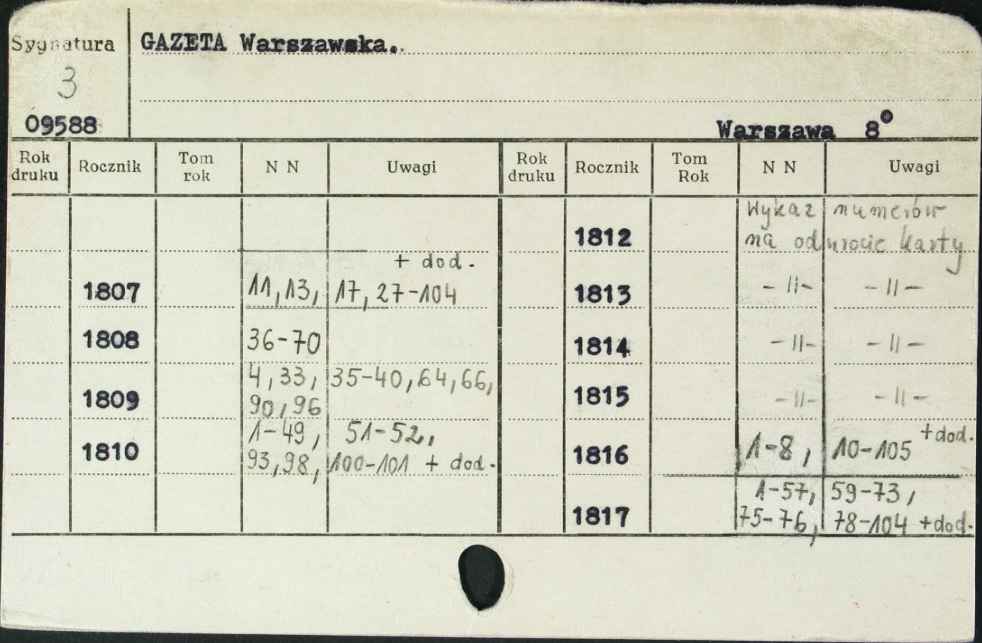 Sygnatura GAZETA Warszawska.
3
09588 Warszawa 8°
Rok druku Rocznik Tom rok N N Uwagi Rok druku Rocznik Tom Rok N N Uwagi
1812 Wykaz numerów
na odwrocie karty
+ dod.
1807 11, 13, 17, 27-104 1813 -II- -II-
1808 36-70 1814 -II- -II-
4, 33, 35-40, 64, 66,
1809 90, 96 1815 -II- -II-
1-49, 51-52,
1810 93, 98, 100-101 + dod. 1816 1-8, 10-105 + dod.
1-57, 59-73,
1817 75-76, 78-104 + dod.